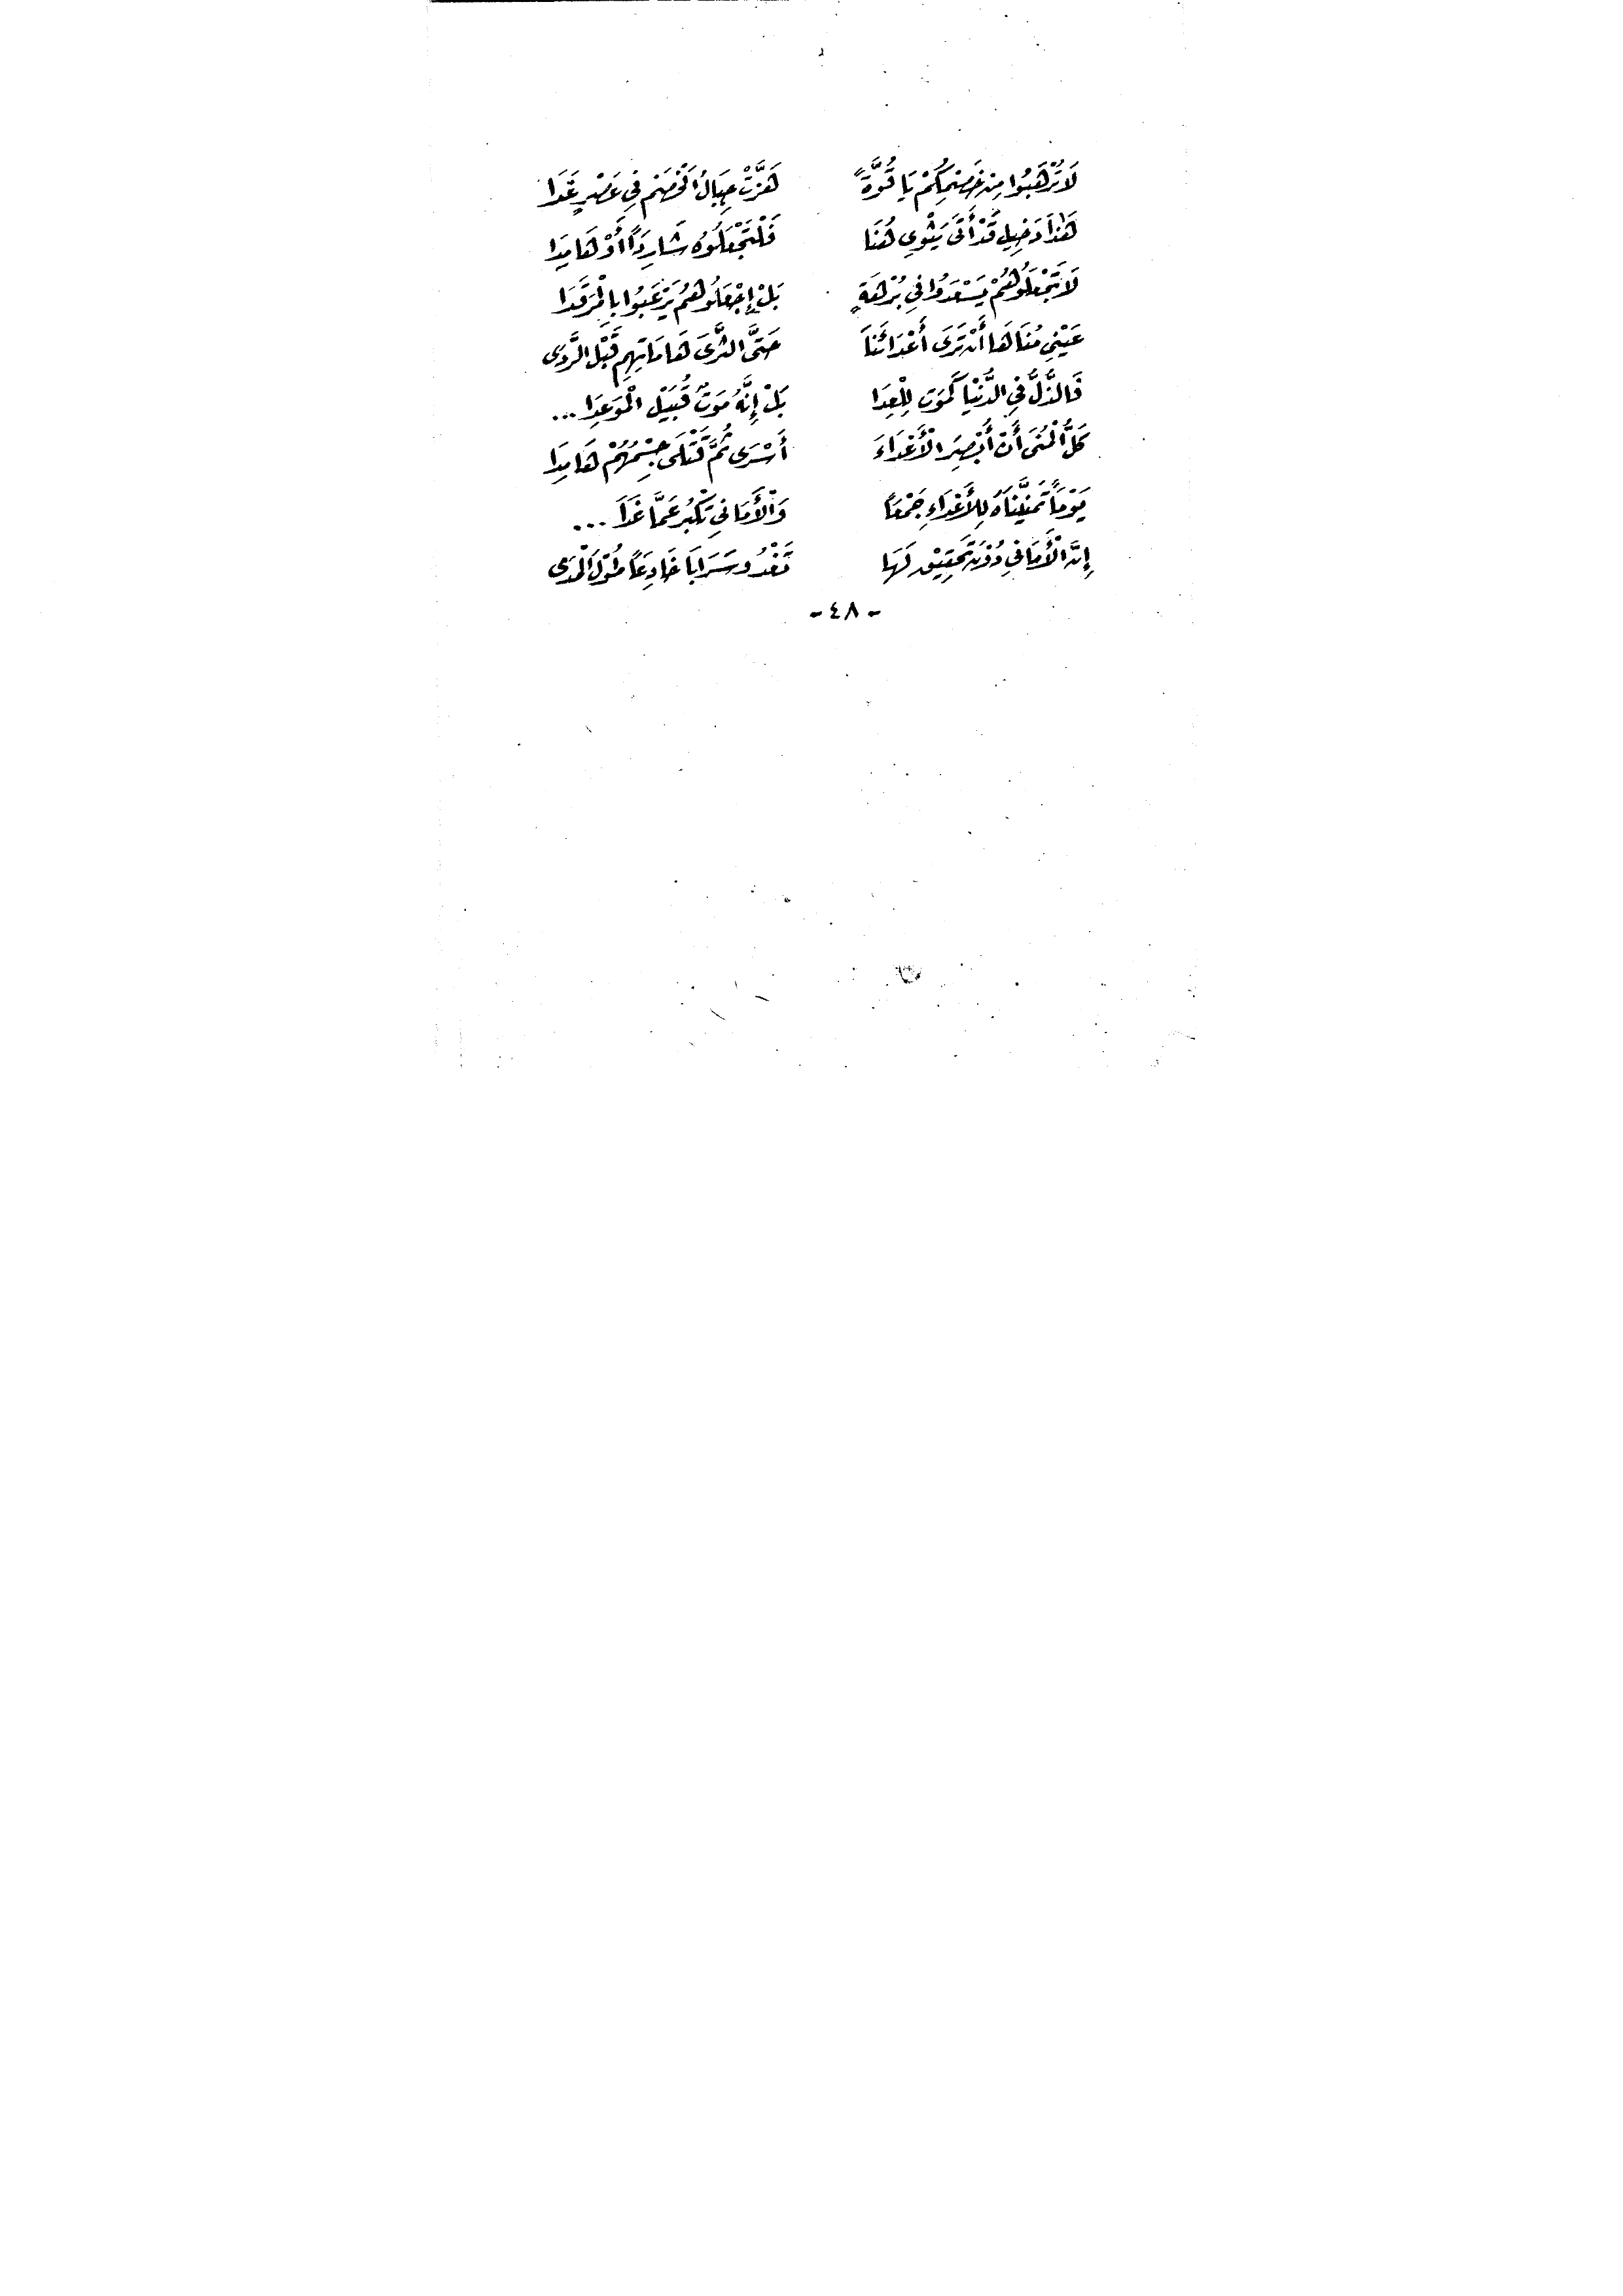 لَا تَرْهَبُوا مِنْ خَصْمِكُمْ يَا قُوَّةً هَزَّتْ جِبَالُ الْخَصْمِ فِي عَصْرٍ غَدَا
هَٰذَا دَخِيل قَدْ أَتَى يَثْوِي هُنَا فَلْتَجْعَلُوهُ شَارِدًا أَوْ هَامِدَا
لَا تَجْعَلُوهُمْ يَسْعَدُوا فِي بُرْهَةٍ بَلْ إِجْعَلُوهُمُ يَرْعَبُوا بِالْمَرْقَدَا
عَيْنِي مُنَاهَا أَنْ تَرَى أَعْدَائَنَا حَتَّى الثَّرَى هَامَاتِهِم قَبْلَ الرَّدَى
فَالذُّلُّ فِي الدُّنْيَا كَمَوْت لِلْعِدَا بَلْ إِنَّهُ مَوْتٌ قُبَيْلَ الْمَوْعِدَا...
كَلُّ الْمُنَى أَنْ أُبْصِرَ الْأَعْدَاءَ أَسْرَى ثُمَّ قَتْلَى جِسْمُهُمْ هَامِدَا
يَوْمًا تَمَنَّيْنَاهُ لِلأَعْدَاءِ جَمْعًا وَالْأَمَانِي تَكْبُرُ عَمَّا غَدَا...
إِنَّ الْأَمَانِي دُوْنَ تَحْقِيْقٍ لَهَا تَغْدُو سَرَابًا خَادِعًا طُوْلَ الْمَدَى
- ٤٨ -